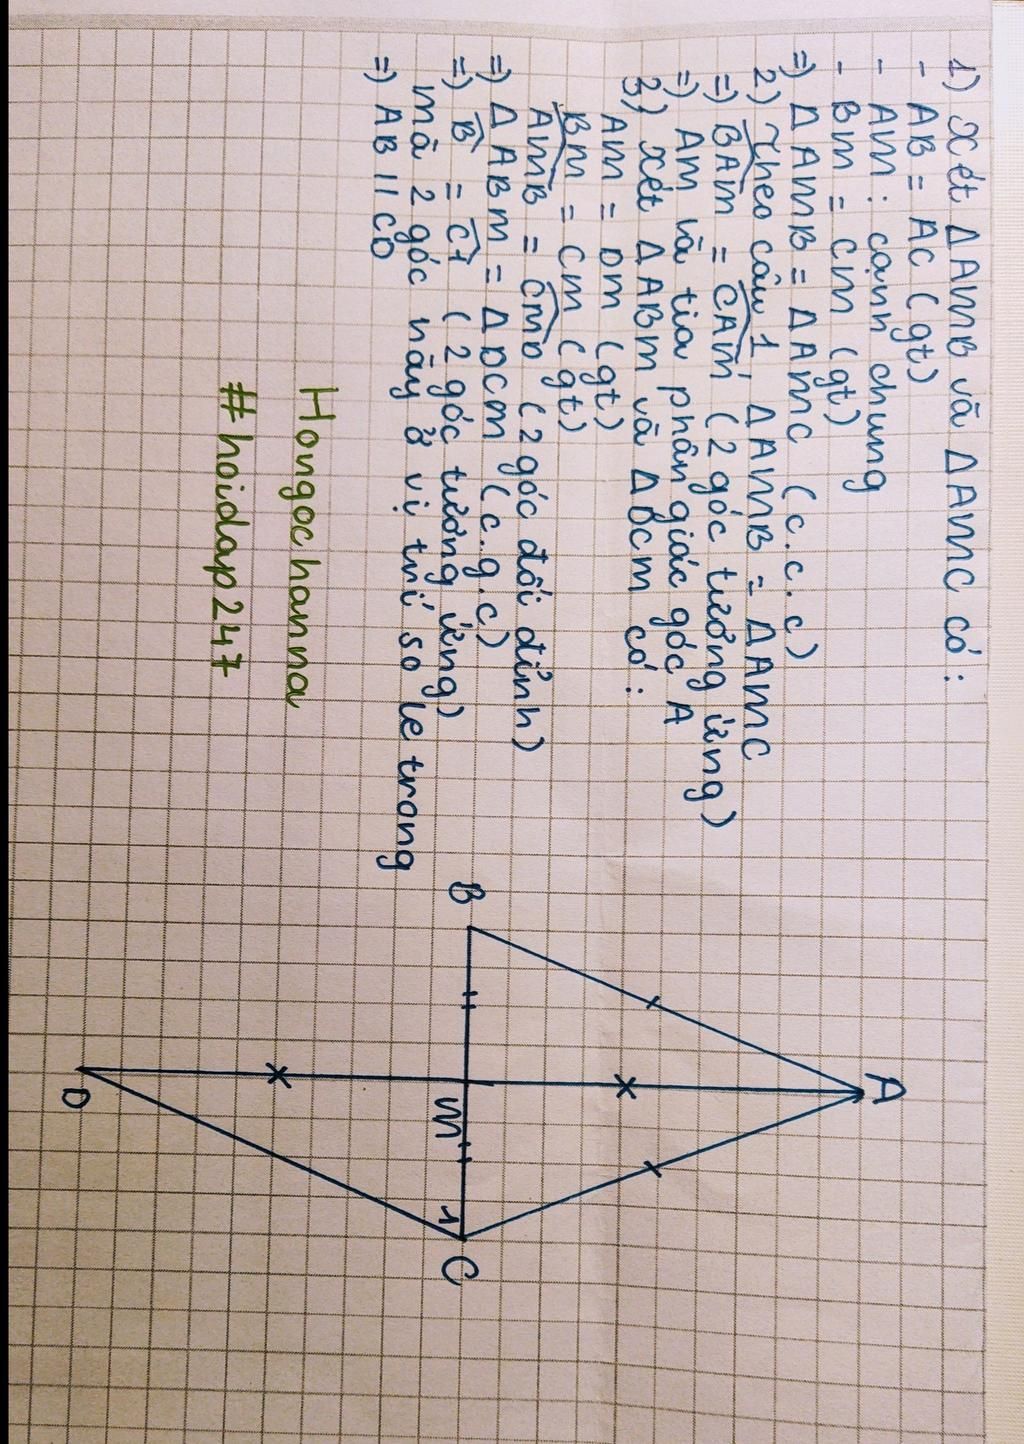 1) Xét ΔAMB và ΔAMC có:
- AB = AC (gt)
- AM: cạnh chung
- BM = CM (gt)
=) ΔAMB = ΔAMC (c.c.c)
2) Theo câu 1, ΔAMB = ΔAMC
=) BAM = CAM (2 góc tương ứng)
=) AM là tia phân giác góc A
3) Xét ΔABM và ΔDCM có:
AM = DM (gt)
BM = CM (gt)
AMB = CMD (2 góc đối đỉnh)
=) ΔABM = ΔDCM (c.g.c)
=) B = C1 (2 góc tương ứng)
mà 2 góc này ở vị trí so le trong
=) AB || CD
Hongochanna
#hoidap247
A
B
M
1
C
D